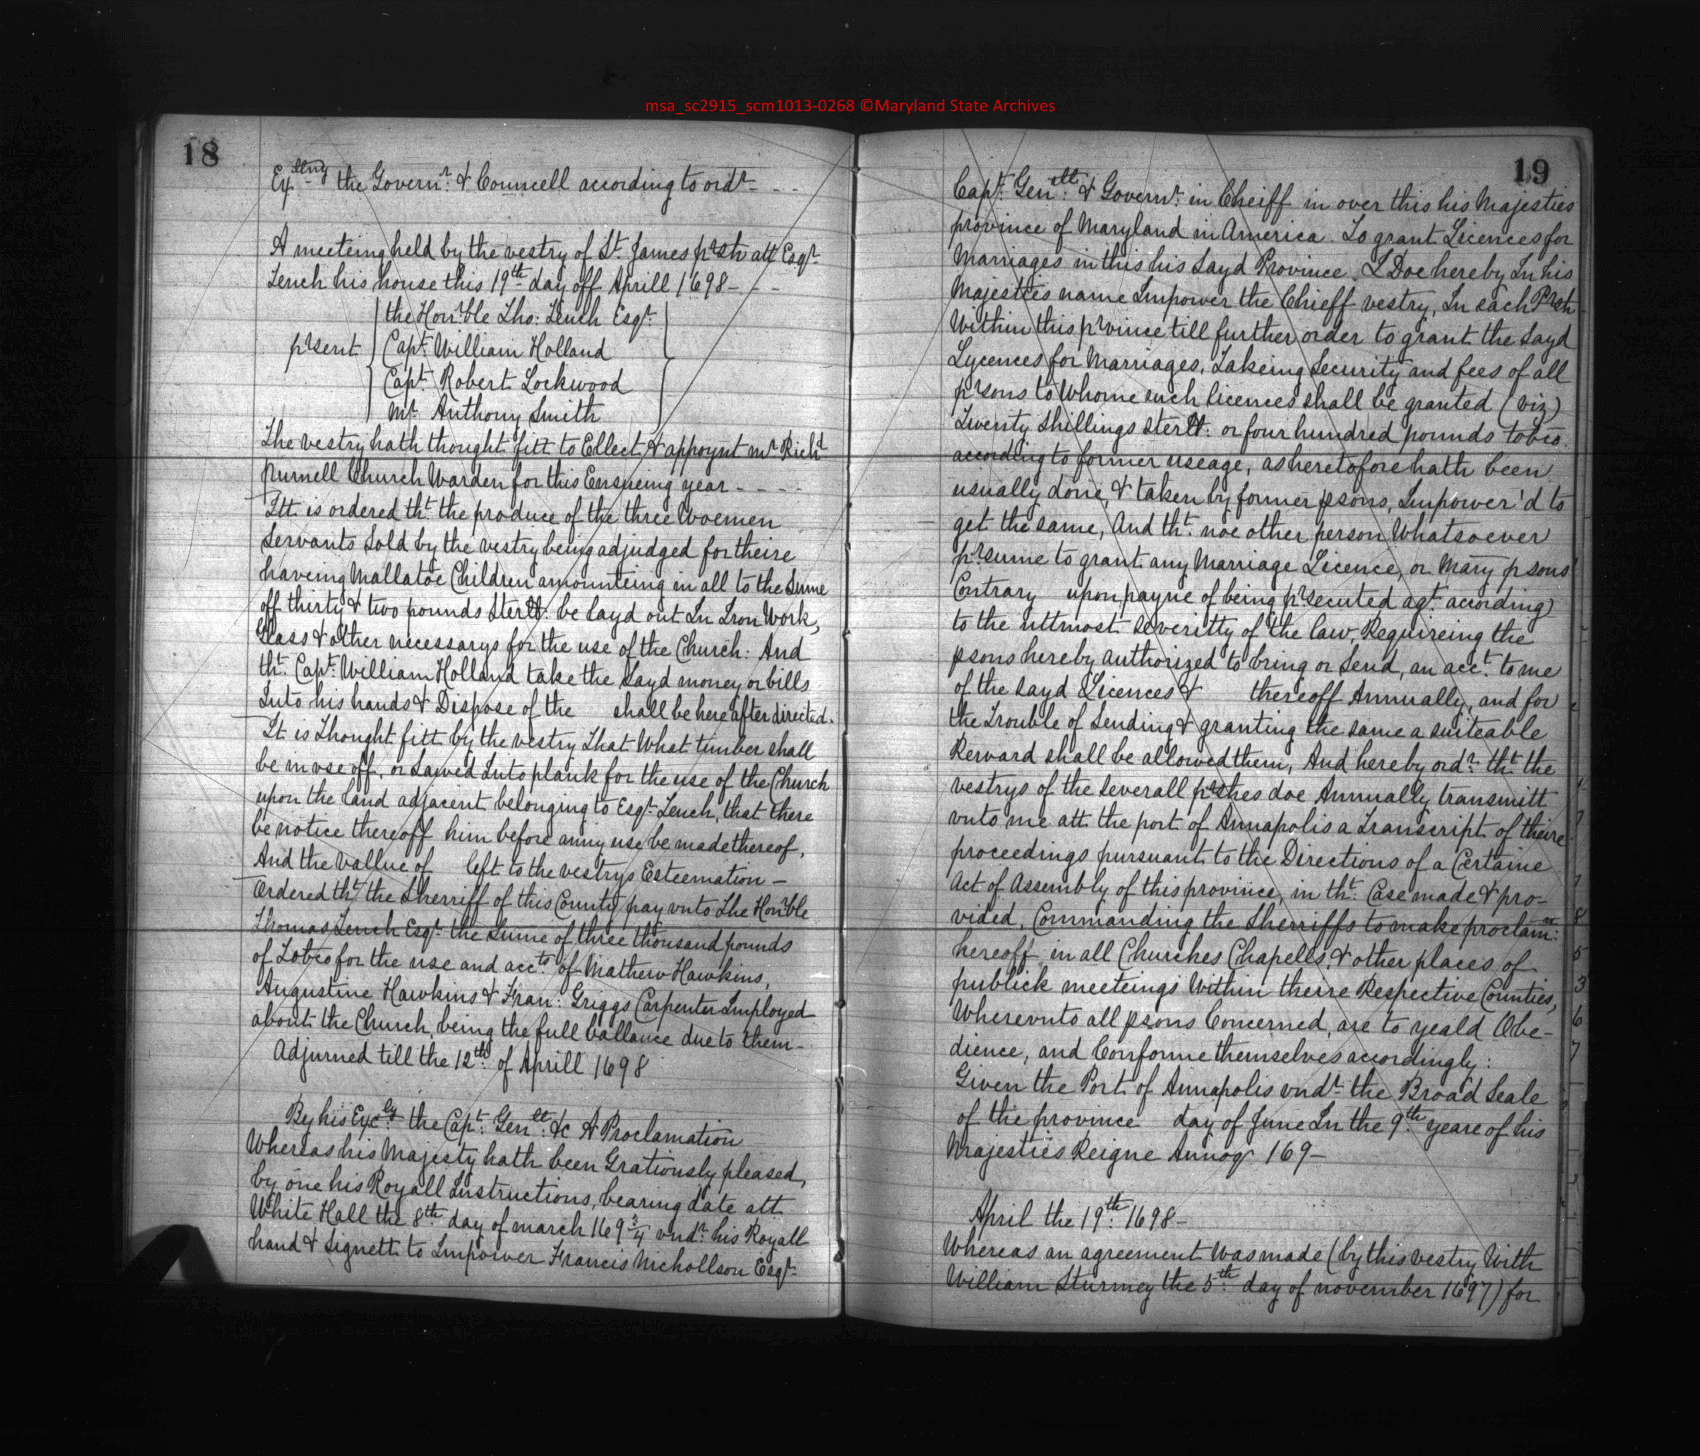 msa_sc2915_scm1013-0268 ©Maryland State Archives
18
the Governr. & Councell according to ordr - - -
A meeteing held by the vestry of St. James prsh att Esqr.
Tench his house this 19th day off Aprill 1698 - - -
the Honrble Tho: Tench Esqr.
prsent Capt. William Holland
Capt. Robert Lockwood
Mr. Anthony Smith
The vestry hath thought fitt to Ellect & appoynt mr Richd
Purnell Church Warden for this Ensueing year - - - -
Itt is ordered tht the produce of the three Woemen
Servants Sold by the vestry being adjudged for theire
haveing Mallatoe Children amounteing in all to the Sume
off thirty & two pounds Sterll: be layd out In Iron Work,
Glass & other necessarys for the use of the Church: And
tht. Capt. William Holland take the Sayd money or bills
Into his hands & Dispose of the shall be here after directed.
It is Thought fitt by the vestry That What timber shall
be in use off, or Sawed Into plank for the use of the Church
upon the land adjacent belonging to Esqr. Tench, that there
be notice thereoff him before anny use be made thereof,
And the vallue of left to the vestrys Esteemation -
Ordered tht. the Sherriff of this County pay vnto The Honrble
Thomas Tench Esqr. the Sume of three thousand pounds
of Tobco for the use and acctt. of Mathew Hawkins,
Augustine Hawkins & Fran: Griggs Carpenter Imployed
about the Church, being the full ballance due to them -
Adjurned till the 12th of Aprill 1698
By his Excly the Capt. Genll. &c A Proclamation
Whereas his Majesty hath been Gratiously pleased,
by one his Royall Instructions, bearing date att
White Hall the 8th day of march 169¾ vndr. his Royall
hand & Signett to Impower Francis Nichollson Esqr.
19
Capt. Genll. & Governr. in Cheiff in over this his Majesties
province of Maryland in America To grant Licences for
Marriages in this his Sayd Province I Doe hereby In his
Majesties name Impower the Chieff vestry, In each Prsh
Within this prvince till further order to grant the Sayd
Lycences for Marriages, Takeing Security and fees of all
prsons to Whome such licences shall be granted (viz)
Twenty Shillings sterll: or four hundred pounds tobco.
according to former useage, as heretofore hath been
usually done, & taken by former psons, Impower'd to
get the same, And tht. noe other person Whatsoever
prsume to grant any Marriage Licence, or Marry psons
Contrary upon payne of being prsecuted agt. according
to the uttmost Severitty of the law, Requireing the
psons hereby authorized to bring or Send, an acct. to me
of the Sayd Licences & thereoff Annually, and for
the Trouble of Sending & granting the same a suiteable
Reward shall be allowed them, And hereby ordr. tht the
vestrys of the Severall prshes doe Annually transmitt
vnto me att the port of Annapolis a Transcript of theire
proceedings pursuant to the Directions of a Certaine
Act of Assembly of this province, in tht. Case made & pro-
vided, Commanding the Sherriffs to make proclamon:
hereoff in all Churches Chapells, & other places of
publick meeteings Within theire Respective Counties,
Wherevnto all psons Concerned, are to yeald Obe-
dience, and Conforme themselves accordingly:
Given the Port of Annapolis vndr. the Broad Seale
of the province day of June In the 9th yeare of his
Majesties Reigne 169-
April the 19th. 1698 -
Whereas an agreement Was made (by this vestry With
William Sturmey the 5th day of november 1697) for